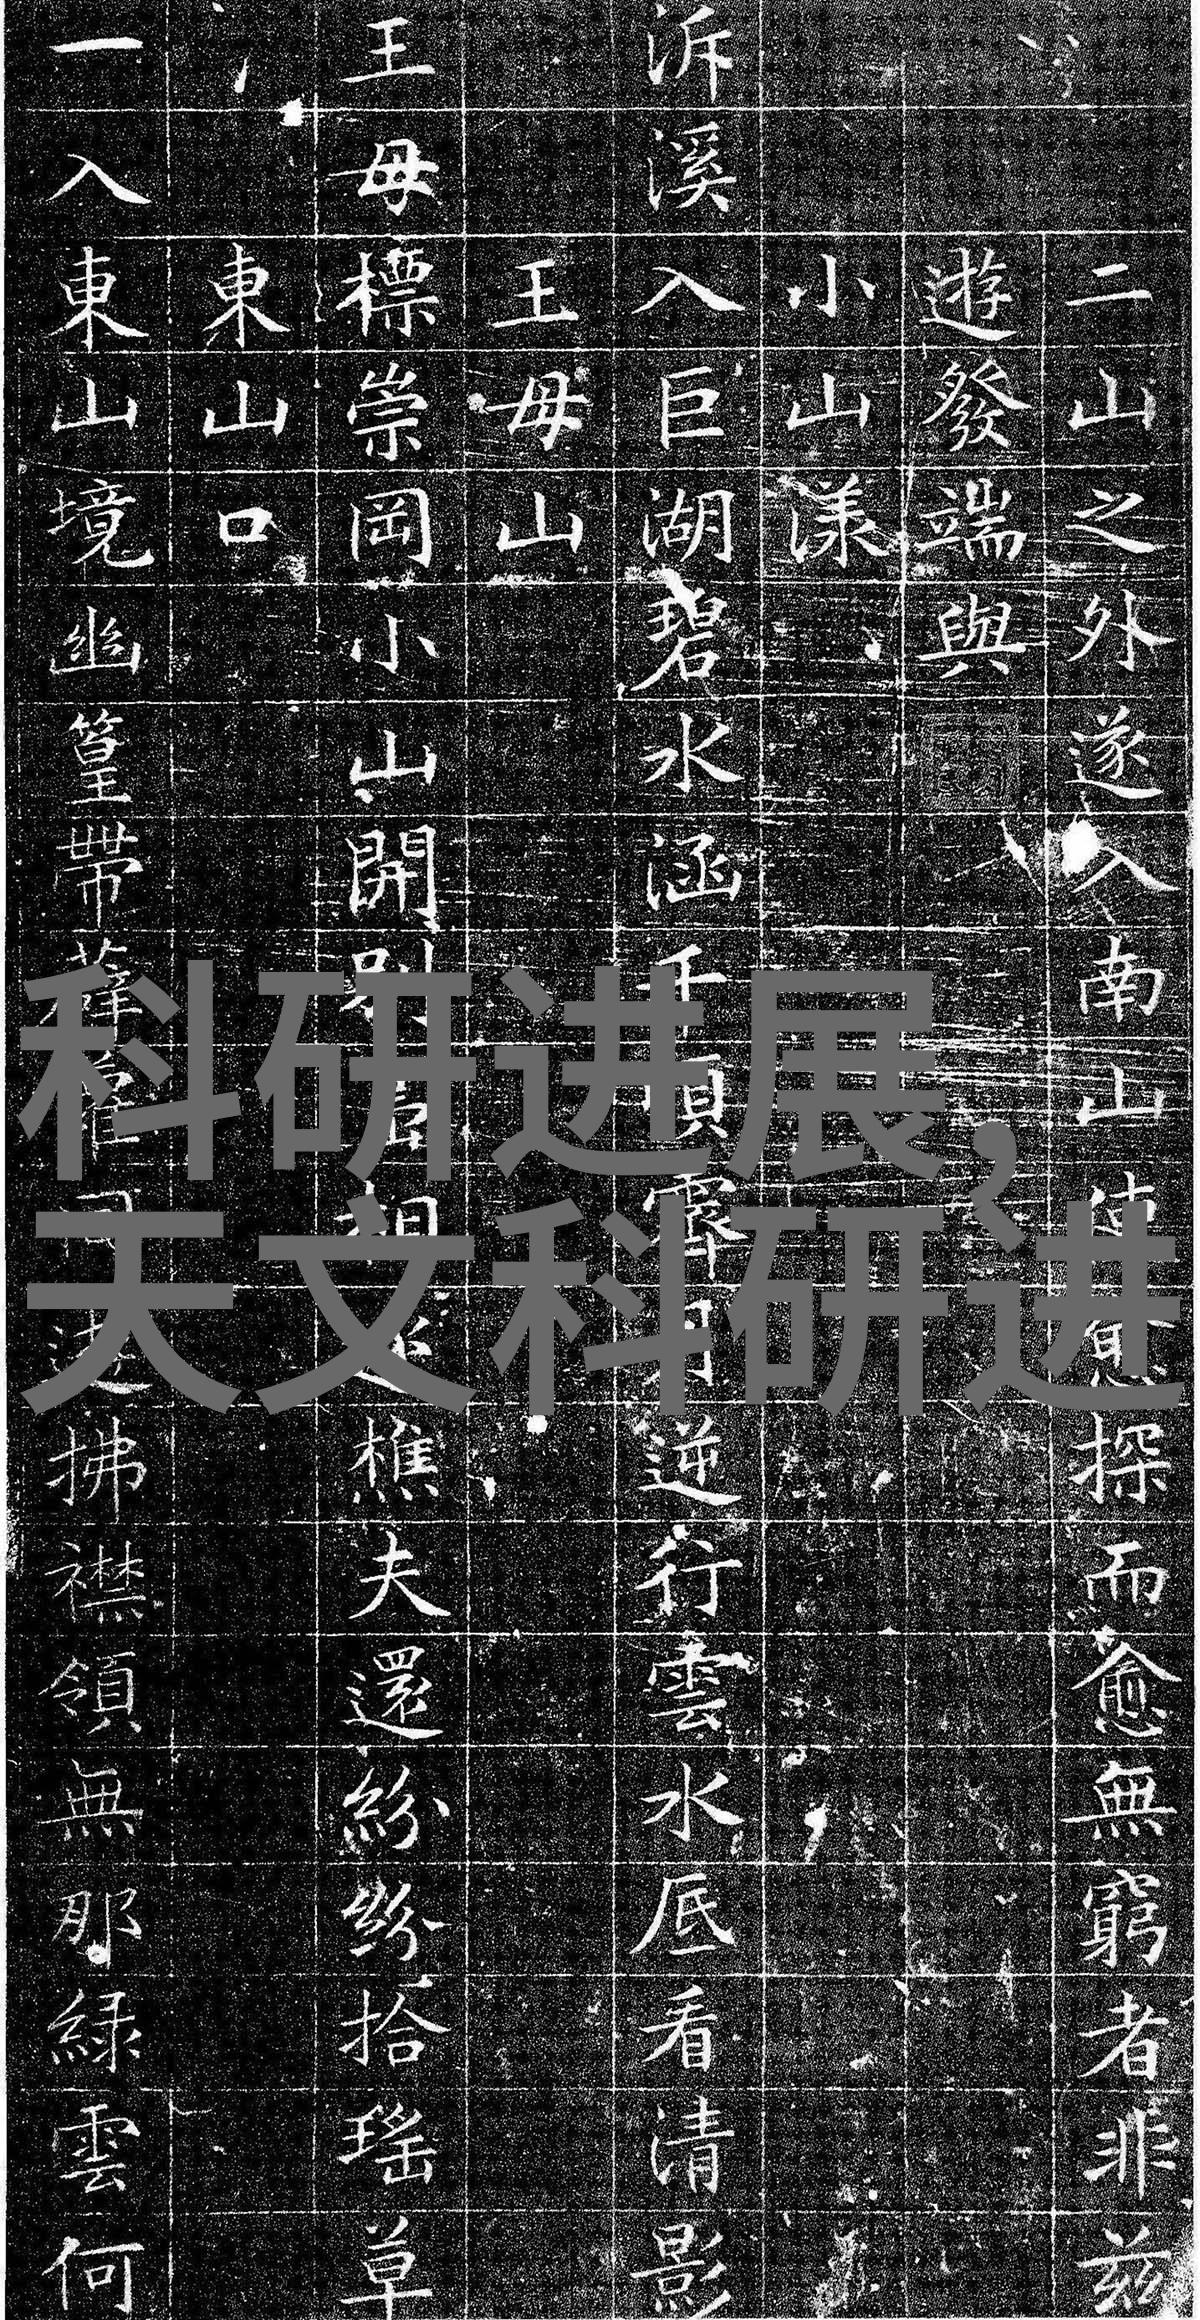 二山之外遂入南山探而愈無窮者非茲
遊發端與
小山漾
泝溪入巨湖碧水涵千頃霽月逆行雲水底看清影
王母山
王母標崇岡小山開別相樵夫還紛紛拾瑤草
東山口
一入東山境幽篁帶薜拂襟領無那緑雲何
科研进展,
天文科研进